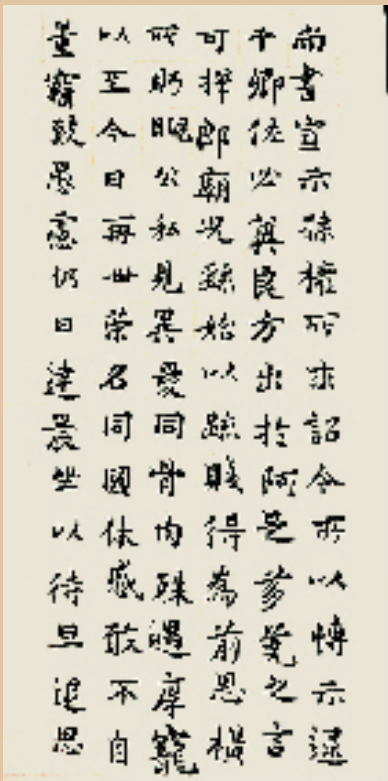 尚書宣示孫權所求詔令所以博示逮
于卿佐必冀良方出於阿是芻蕘之言
可擇郎廟況繇始以疏賤得為前恩橫
所眄睨公私見異愛同骨肉殊遇厚寵
以至今日再世榮名同國休慼敢不自
量竊致愚慮仍日達晨坐以待旦退思